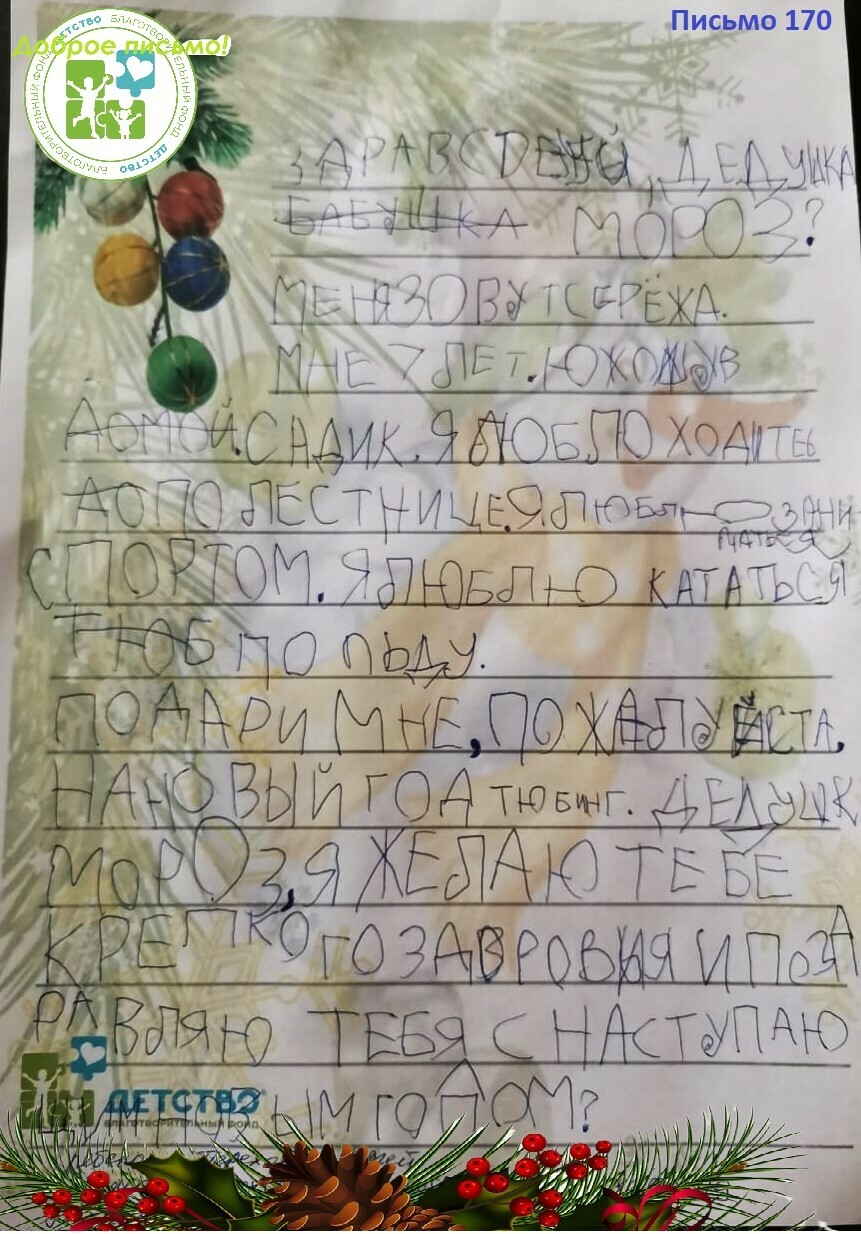 Письмо 170
Доброе письмо!
БЛАГОТВОРИТЕЛЬНЫЙ ФОНД ДЕТСТВО БЛАГОТВОРИТЕЛЬНЫЙ ФОНД ДЕТСТВО
ДЕДУШКА
БАБУШКА МОРОЗ?
МЕНЯ ЗОВУТ СЕРЁЖА.
МНЕ 7 ЛЕТ. Ю ХОЖУ В
ДОМОЙ. САДИК. Я ЛЮБЛЮ ХОДИТЕЬ
ДО ПО ЛЕСТНИЦЕ. Я ЛЮБЛЮ ЗАНИ
МАТЬСЯ
СПОРТОМ. Я ЛЮБЛЮ КАТАТЬСЯ
ТЮБ ПО ЛЬДУ.
ПОДАРИ МНЕ, ПОЖАЛУЙСТА,
НА НОВЫЙ ГОД ТЮБИНГ. ДЕДУШК
МОРОЗ, Я ЖЕЛАЮ ТЕБЕ
КРЕПКОГО ЗДВРОВЬЯ И ПОЗД
РАВЛЯЮ ТЕБЯ С НАСТУПАЮ
ЫМ ГОДОМ?
ДЕТСТВО
БЛАГОТВОРИТЕЛЬНЫЙ ФОНД